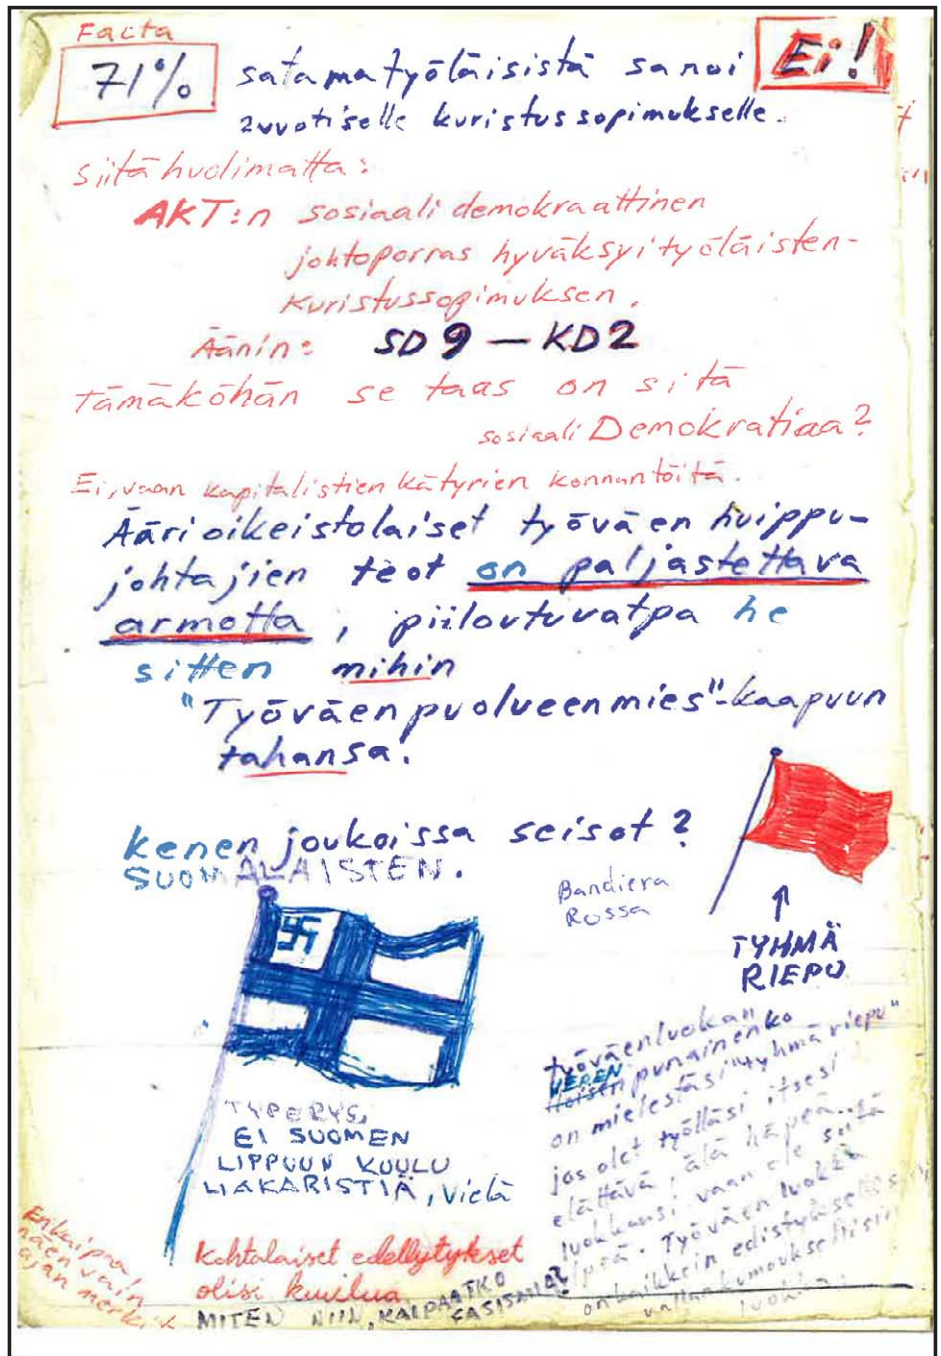 Facta
71% satamatyöläisistä sanoi Ei!
2vuotiselle kuristussopimukselle.
siitä huolimatta:
AKT:n sosiaalidemokraattinen
johtoporras hyväksyi työläisten-
kuristussopimuksen.
Äänin: SD 9 — KD 2
Tämäköhän se taas on sitä
sosiaali Demokratiaa?
Ei, vaan kapitalistien kätyrien konnantöitä.
Äärioikeistolaiset työväen huippu-
johtajien teot on paljastettava
armotta, piiloutuvatpa he
sitten mihin
"Työväenpuolueenmies"-kaapuun
tahansa.
kenen joukoissa seisot?
SUOMALAISTEN.
Bandiera
Rossa
↑
TYHMÄ
RIEPU
TYPERYS,
EI SUOMEN
LIPPUUN KUULU
HAKARISTIÄ, vielä
työväenluokan
VEREN
punainenko
on mielestäsi "tyhmä riepu"
jos olet työlläsi itsesi
elättävä, älä häpeä
luokkaasi vaan ole siitä
ylpeä. Työväenluokka
on kaikkein edistyksellisin
vallankumouksellisin
luokka.
Kohtalaiset edellytykset
olisi kuulua
MITEN NIIN, KAIPAATKO
FASISMIA?
En kaipaa,
näen vain
ajan merkit